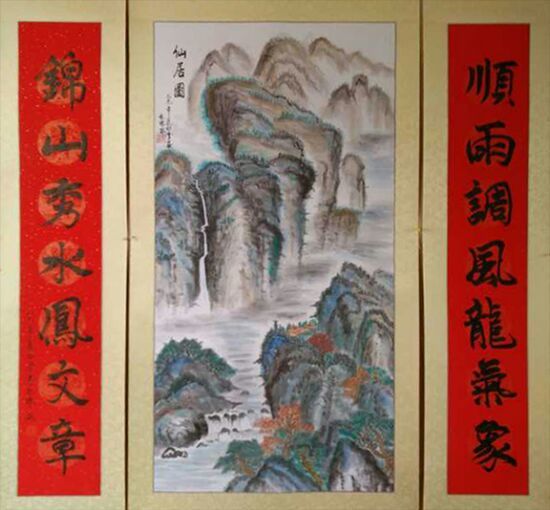 順雨調風龍氣象
仙居圖
錦山秀水鳳文章